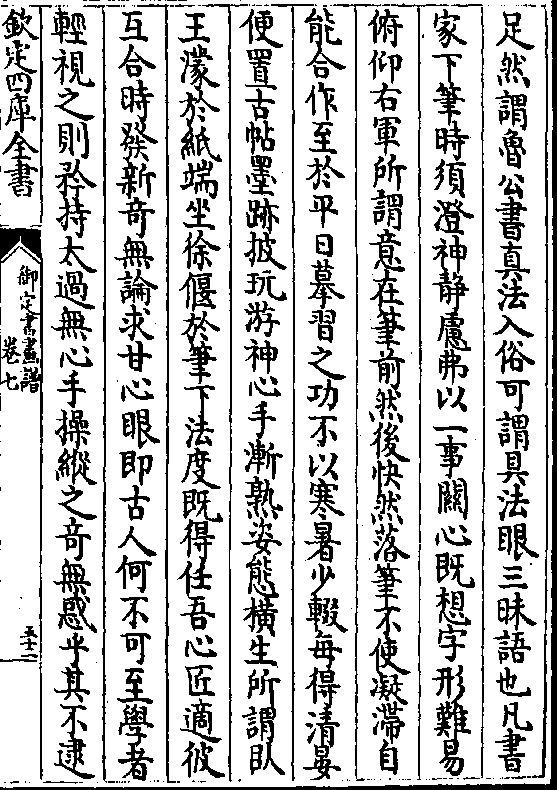 足然謂魯公書真法入俗可謂具法眼三昧語也凡書
家下筆時須澄神静慮弗以一事關心既想字形難易
俯仰右軍所謂意在筆前然後快然落筆不使凝滯自
能合作至於平日摹習之功不以寒暑少輟每得清晏
便置古帖墨跡披玩游神心手漸熟姿態横生所謂臥
王濛於紙端坐徐偃於筆下法度既得任吾心匠適彼
互合時發新竒無論求甘心眼即古人何不可至學者
輕視之則矜持太過無心手操縱之竒無惑乎其不逮
欽定四庫全書
御定書畫譜
卷七
五十二